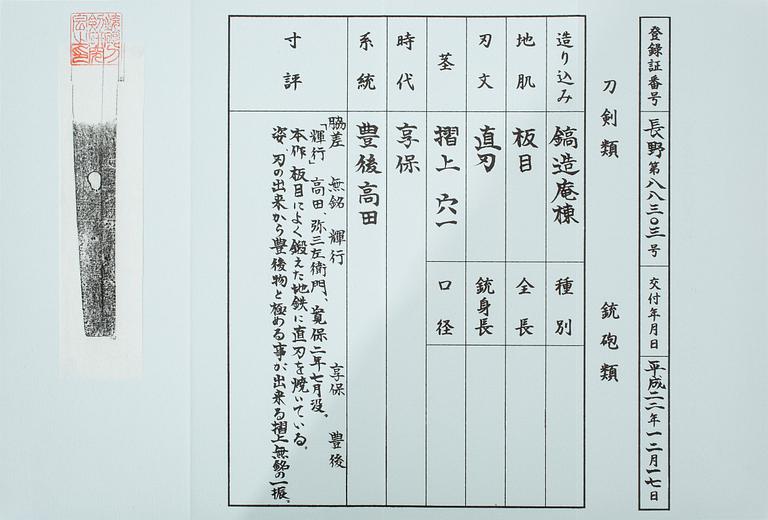 登録証番号 長野第八八三〇三号 交付年月日 平成二二年一二月一七日
刀剣類 銃砲類
造り込み 鎬造庵棟 種別
地肌 板目 全長
刃文 直刃 銃身長
茎 摺上 穴一 口径
時代 享保
系統 豊後高田
寸評
脇差 無銘 輝行 享保 豊後
「輝行」高田、弥三左衛門、寛保二年七月没。
本作、板目によく鍛えた地鉄に直刃を焼いている。
姿、刃の出来から豊後物と極める事が出来る摺上無銘の一振。